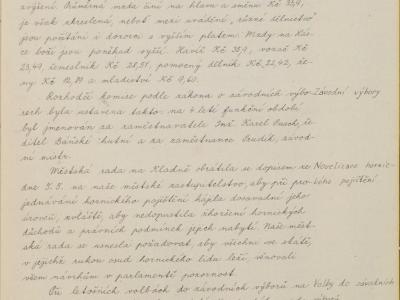 zvýšení. Průměrná mzda činí na hlavu a směnu Kč 35,9,
je však zkreslena, neboť mezi uvádění „různé dělnictvo"
jsou počítáni i dozorci s vyšším platem. Mzdy na Káč-
ce boří jsou poněkud vyšší. Havíř Kč 38,9, vozač Kč
23,49, řemeslník Kč 28,57, pomocný dělník Kč 22,42, že-
ny Kč 12,79 a mladiství Kč 9,60.
Rozhodčí komise podle zákona o závodních výbo- Závodní výbory
rech byla ustavena takto: na 4 leté funkční období
byl jmenován za zaměstnavatele Ing. Karel ře-
ditel Báňské hutní a za zaměstnance Prudík, závod-
ní mistr.
Městská rada na Kladně obrátila se dopisem ze Novelisace hornic-
dne 7.3. na naše městské zastupitelstvo, aby při pro- kého pojištění
jednávání hornického pojištění hájila dosavadní jeho
úroveň, zvláště, aby nedopustila zhoršení hornických
důchodů a právních podmínek jejich nabytí. Naše měst-
ská rada se usnesla požadovat, aby všichni ve státě,
v jejichž rukou osud hornického lidu leží, věnovali
všem návrhům v parlamentě pozornost.
Při letošních volbách do závodních výborů na Volby do závodních